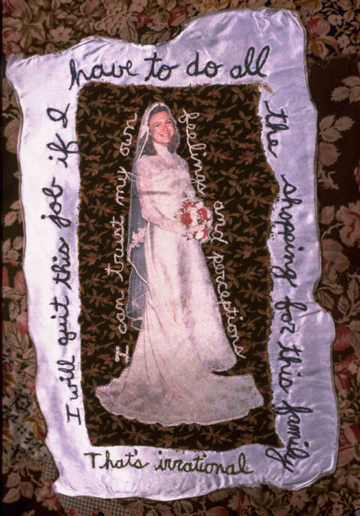 I will quit this job if I
have to do all
the shopping for this family
That's irrational
I can trust my own
feelings and perceptions